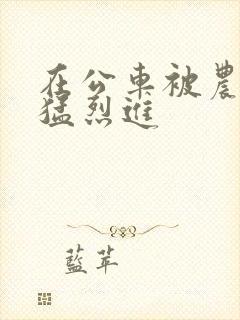 在公車被農
猛烈進
藍苹